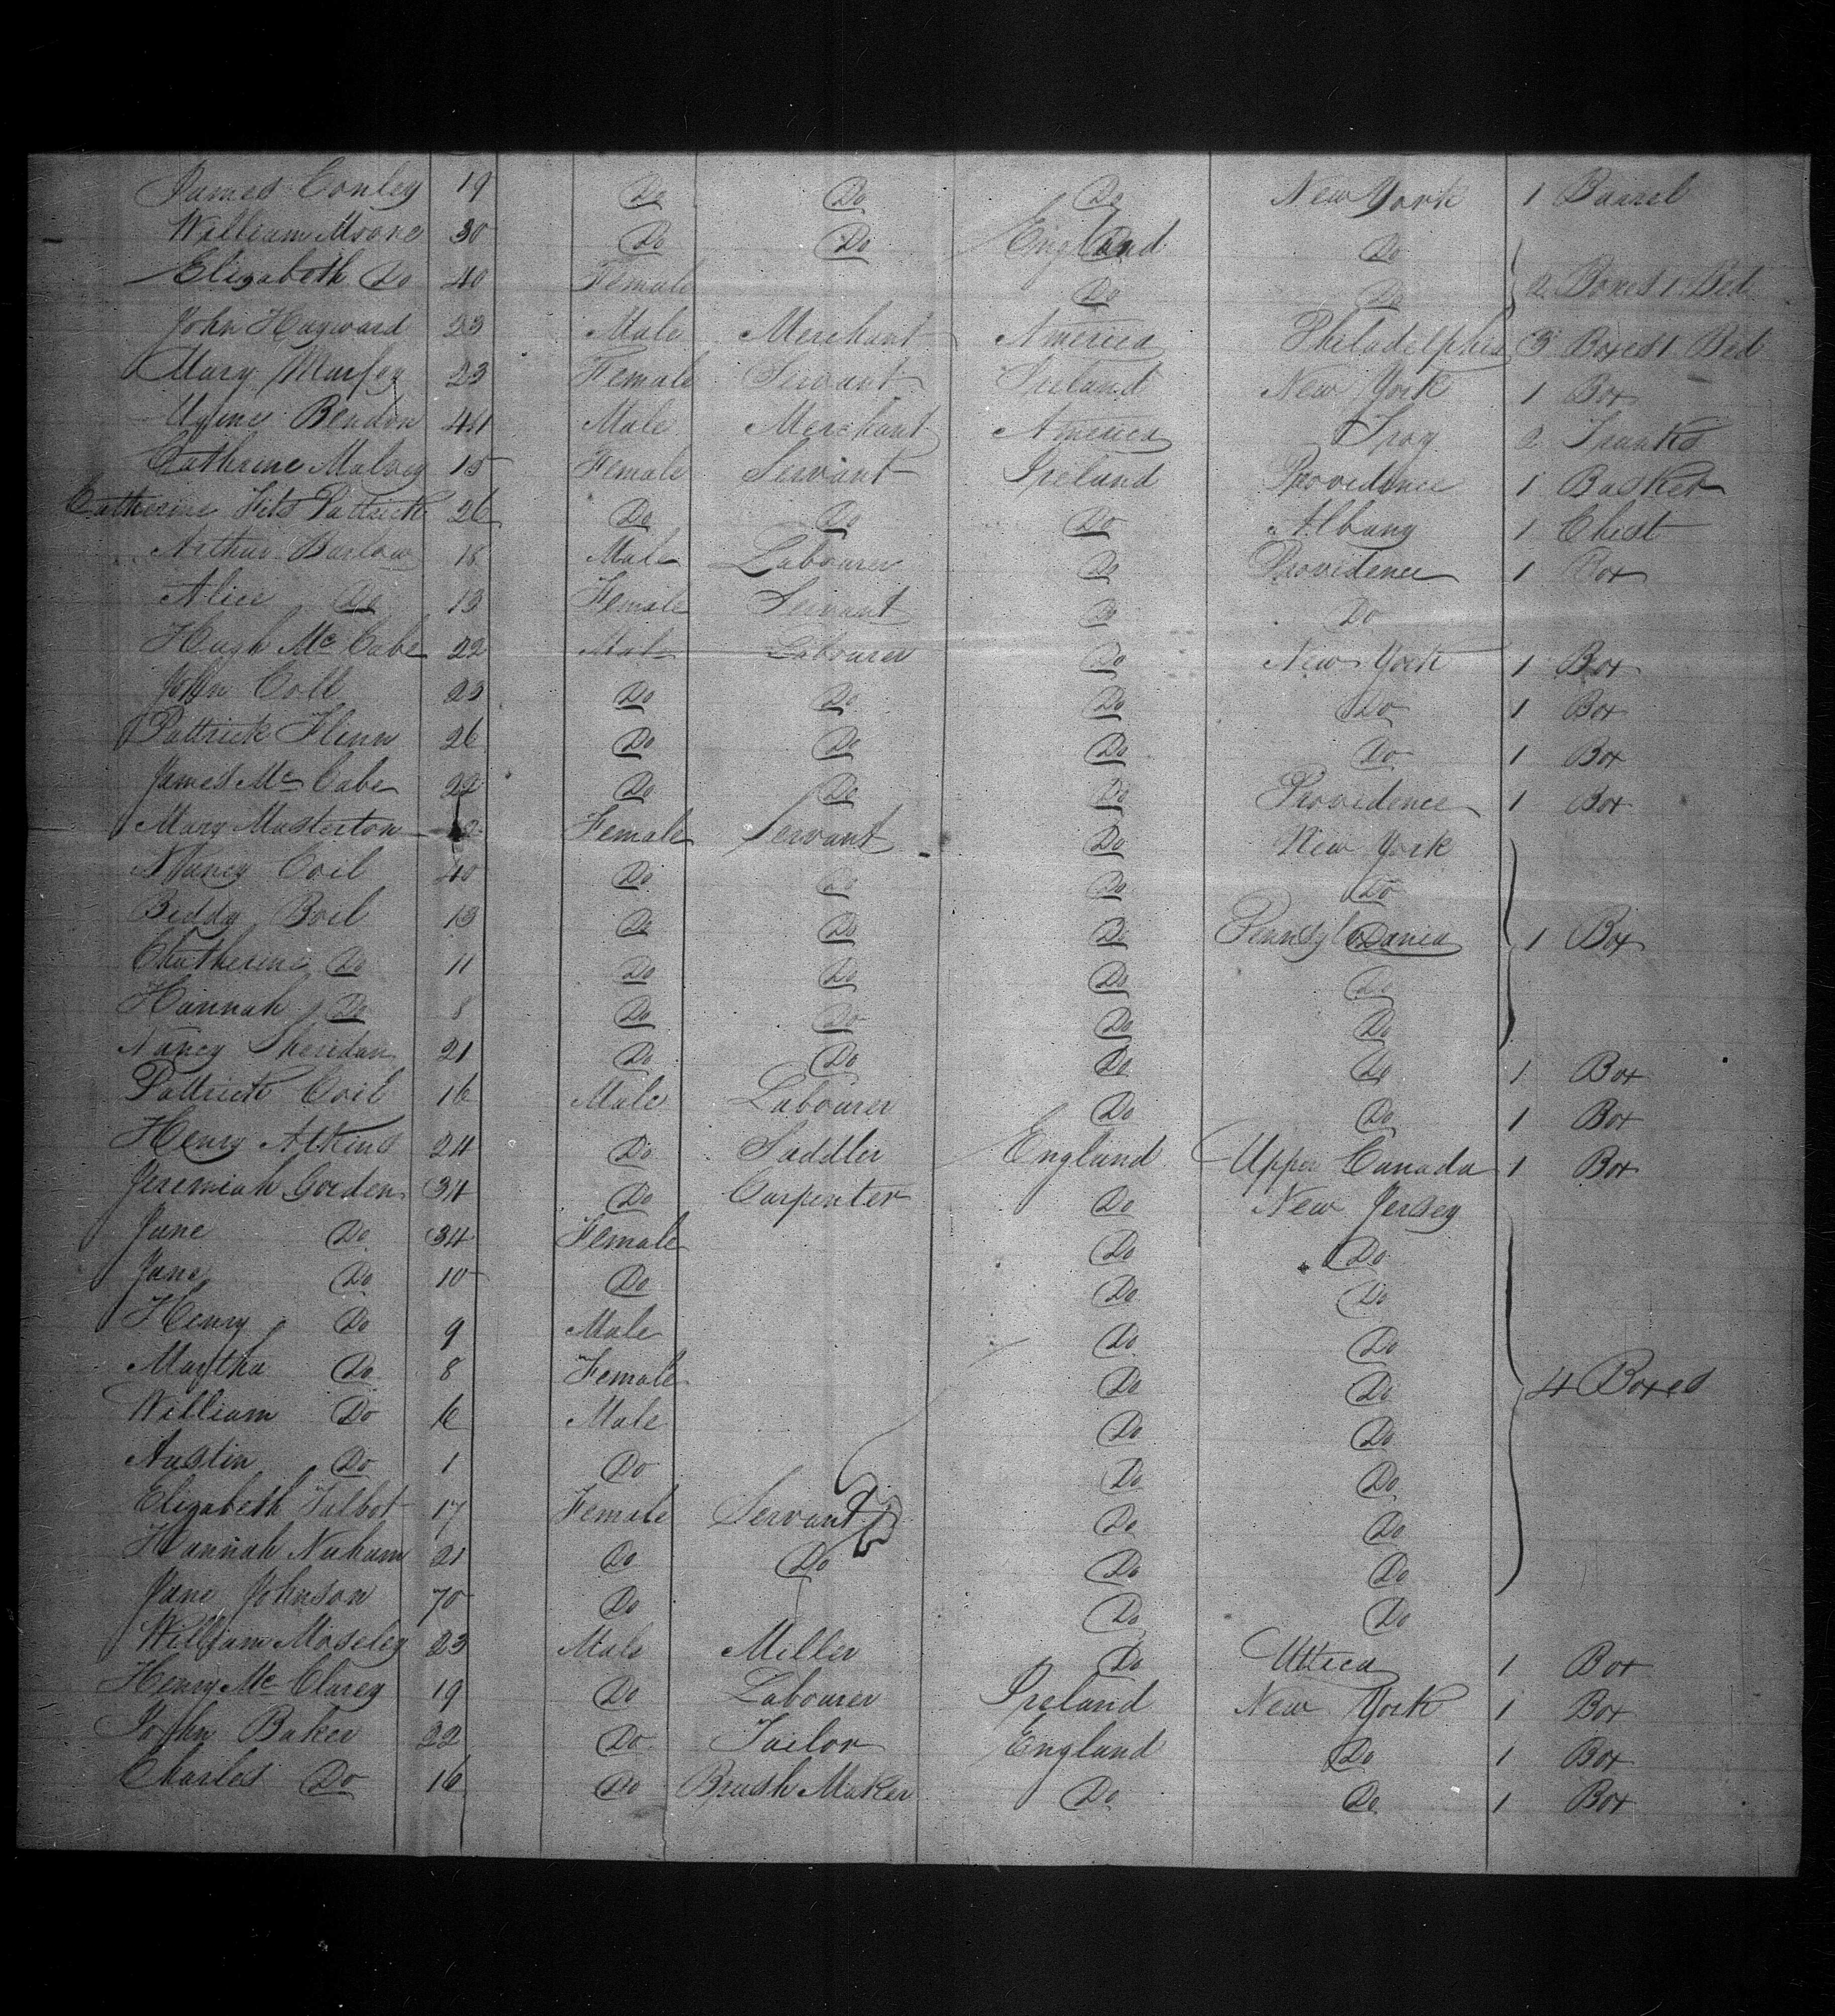 James Conley 19 Do Do Do New York 1 Barrel
William Moore 30 Do Do England Do
Elizabeth Do 40 Female Do Do 2 Boxes 1 Bed
John Hayward 23 Male Merchant America Philadelphia 3 Boxes 1 Bed
Mary Murfey 23 Female Servant Ireland New York 1 Box
Bendon Male Merchant America Troy 2 Trunks
Cathrine Malvey 15 Female Servant Ireland Providence 1 Basket
Catherine Fits Pattrick 26 Do Do Do Albany 1 Chest
Arthur Barlow 18 Male Labourer Do Providence 1 Box
Alice Do 13 Female Servant Do Do
Hugh Mc Cabe 22 Male Labourer Do New York 1 Box
John Coll 23 Do Do Do Do 1 Box
Pattrick Flinn 26 Do Do Do Do 1 Box
James Mc Cabe 22 Do Do Do Providence 1 Box
Mary Masterton Female Servant Do New York
Nancy Coil 40 Do Do Do Do
Biddy Boil 13 Do Do Do Pennsylvania 1 Box
Chatherine Do 11 Do Do Do Do
Hannah Do 8 Do Do Do Do
Nancy Sheridan 21 Do Do Do Do 1 Box
Pattrick Coil 16 Male Labourer Do Do 1 Box
Henry Atkins 24 Do Saddler England Upper Canada 1 Box
Jeremiah Gorden 34 Do Carpenter Do New Jersey
Jane Do 34 Female Do Do
Jane Do 10 Do Do Do
Henry Do 9 Male Do Do
Martha Do 8 Female Do Do 4 Boxes
William Do 6 Male Do Do
Austin Do 1 Do Do Do
Elizabeth Talbot 17 Female Servant Do Do
Hannah Naham 21 Do Do Do Do
Jane Johnson 70 Do Do Do
William Moseley 23 Male Miller Do Uttica 1 Box
Henry Mc Clarey 19 Do Labourer Ireland New York 1 Box
John Baker 22 Do Tailor England Do 1 Box
Charles Do 16 Do Brush Maker Do Do 1 Box